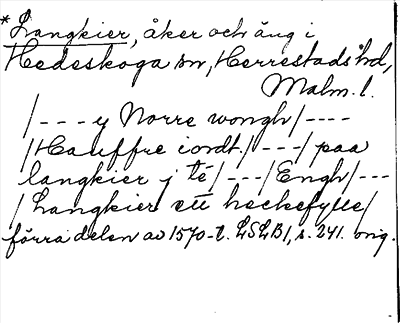 *Langkier, åker och äng i
Hedeskoga sn, Herrestads hd,
Malm. l.
/--- y Norre wongh/----
/Hauffre iordt/---/paa
langkier j te/---/Engh/---
/Langkier ett heckefylle/
förra delen av 1570-t. LSLB1, s. 241. orig.